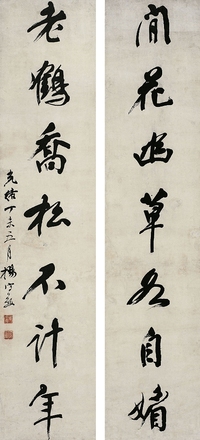 閒花幽草各自媚
老鶴喬松不計年
光緒丁未五月楊守敬